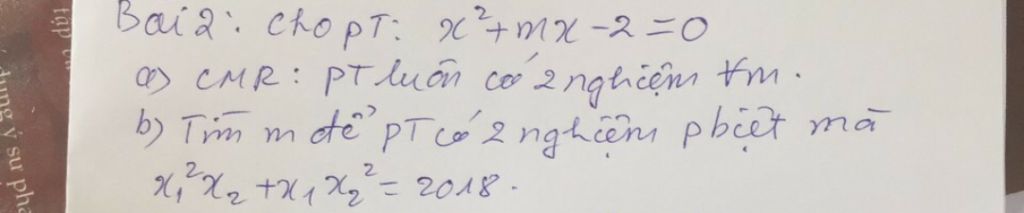 Bài 2: Cho pT: x²+mx-2=0
a) CMR: pT luôn có 2 nghiệm ∀m.
b) Tìm m để pT có 2 nghiệm pbiệt mà
x₁²x₂+x₁x₂²=2018.